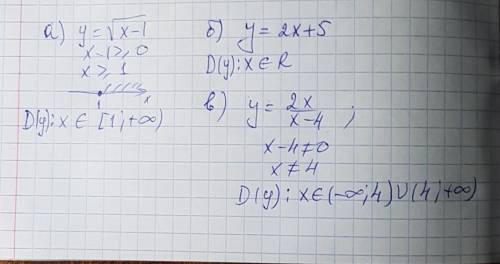 а) y = √x-1
x-1 ⩾ 0
x ⩾ 1
1 x
D(y): x ∈ [1; +∞)
б) y = 2x+5
D(y): x ∈ R
в) y = 2x/x-4 ;
x-4≠0
x ≠ 4
D(y): x∈(-∞; 4) ∪ (4; +∞)